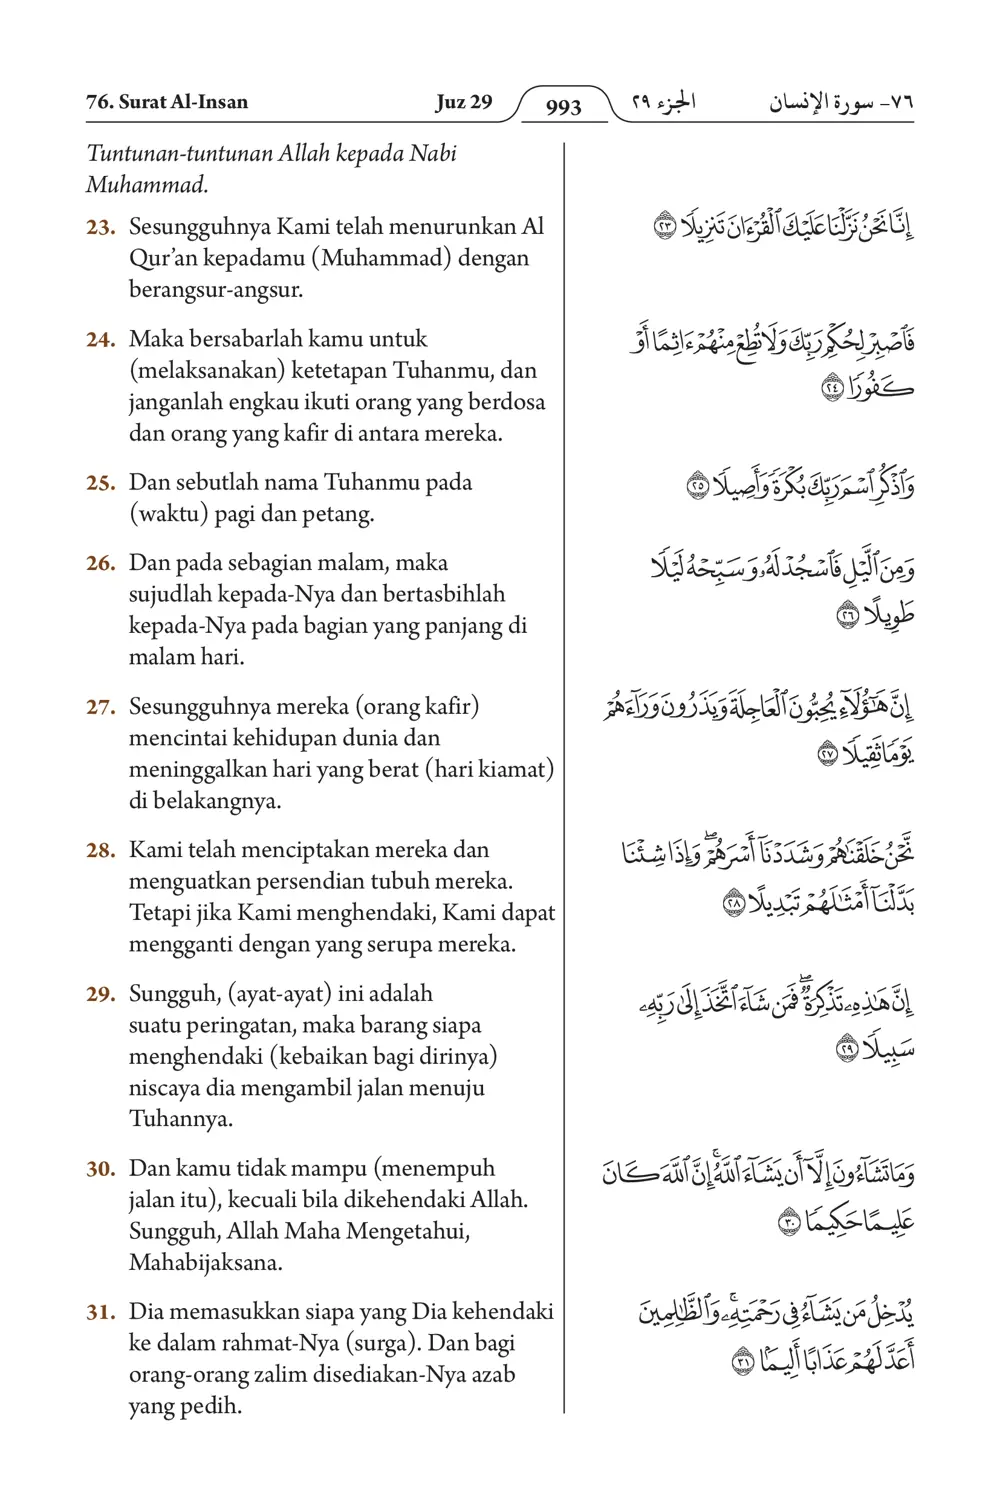 76. Surat Al-Insan Juz 29 993 الجزء ٢٩ ٧٦- سورة الإنسان
Tuntunan-tuntunan Allah kepada Nabi
Muhammad.
23. Sesungguhnya Kami telah menurunkan Al
Qur’an kepadamu (Muhammad) dengan
berangsur-angsur.
إِنَّا نَحْنُ نَزَّلْنَا عَلَيْكَ ٱلْقُرْءَانَ تَنزِيلًا ٢٣
24. Maka bersabarlah kamu untuk
(melaksanakan) ketetapan Tuhanmu, dan
janganlah engkau ikuti orang yang berdosa
dan orang yang kafir di antara mereka.
فَٱصْبِرْ لِحُكْمِ رَبِّكَ وَلَا تُطِعْ مِنْهُمْ ءَاثِمًا أَوْ
كَفُورًا ٢٤
25. Dan sebutlah nama Tuhanmu pada
(waktu) pagi dan petang.
وَٱذْكُرِ ٱسْمَ رَبِّكَ بُكْرَةً وَأَصِيلًا ٢٥
26. Dan pada sebagian malam, maka
sujudlah kepada-Nya dan bertasbihlah
kepada-Nya pada bagian yang panjang di
malam hari.
وَمِنَ ٱلَّيْلِ فَٱسْجُدْ لَهُۥ وَسَبِّحْهُ لَيْلًا
طَوِيلًا ٢٦
27. Sesungguhnya mereka (orang kafir)
mencintai kehidupan dunia dan
meninggalkan hari yang berat (hari kiamat)
di belakangnya.
إِنَّ هَٰٓؤُلَآءِ يُحِبُّونَ ٱلْعَاجِلَةَ وَيَذَرُونَ وَرَآءَهُمْ
يَوْمًا ثَقِيلًا ٢٧
28. Kami telah menciptakan mereka dan
menguatkan persendian tubuh mereka.
Tetapi jika Kami menghendaki, Kami dapat
mengganti dengan yang serupa mereka.
نَّحْنُ خَلَقْنَٰهُمْ وَشَدَدْنَآ أَسْرَهُمْ ۖ وَإِذَا شِئْنَا
بَدَّلْنَآ أَمْثَٰلَهُمْ تَبْدِيلًا ٢٨
29. Sungguh, (ayat-ayat) ini adalah
suatu peringatan, maka barang siapa
menghendaki (kebaikan bagi dirinya)
niscaya dia mengambil jalan menuju
Tuhannya.
إِنَّ هَٰذِهِۦ تَذْكِرَةٌ ۖ فَمَن شَآءَ ٱتَّخَذَ إِلَىٰ رَبِّهِۦ
سَبِيلًا ٢٩
30. Dan kamu tidak mampu (menempuh
jalan itu), kecuali bila dikehendaki Allah.
Sungguh, Allah Maha Mengetahui,
Mahabijaksana.
وَمَا تَشَآءُونَ إِلَّآ أَن يَشَآءَ ٱللَّهُ ۚ إِنَّ ٱللَّهَ كَانَ
عَلِيمًا حَكِيمًا ٣٠
31. Dia memasukkan siapa yang Dia kehendaki
ke dalam rahmat-Nya (surga). Dan bagi
orang-orang zalim disediakan-Nya azab
yang pedih.
يُدْخِلُ مَن يَشَآءُ فِى رَحْمَتِهِۦ ۚ وَٱلظَّٰلِمِينَ
أَعَدَّ لَهُمْ عَذَابًا أَلِيمًۢا ٣١